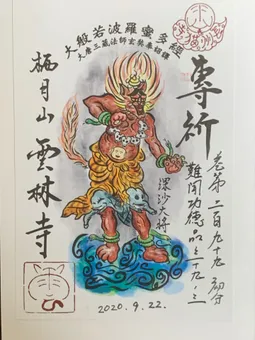 大般若波羅蜜多經
大唐三藏法師玄奘奉詔譯
專祈
卷第二百九十九 部分
難聞功德品三十九之三
深沙大将
栖月山 雲林寺
2020.9.22.